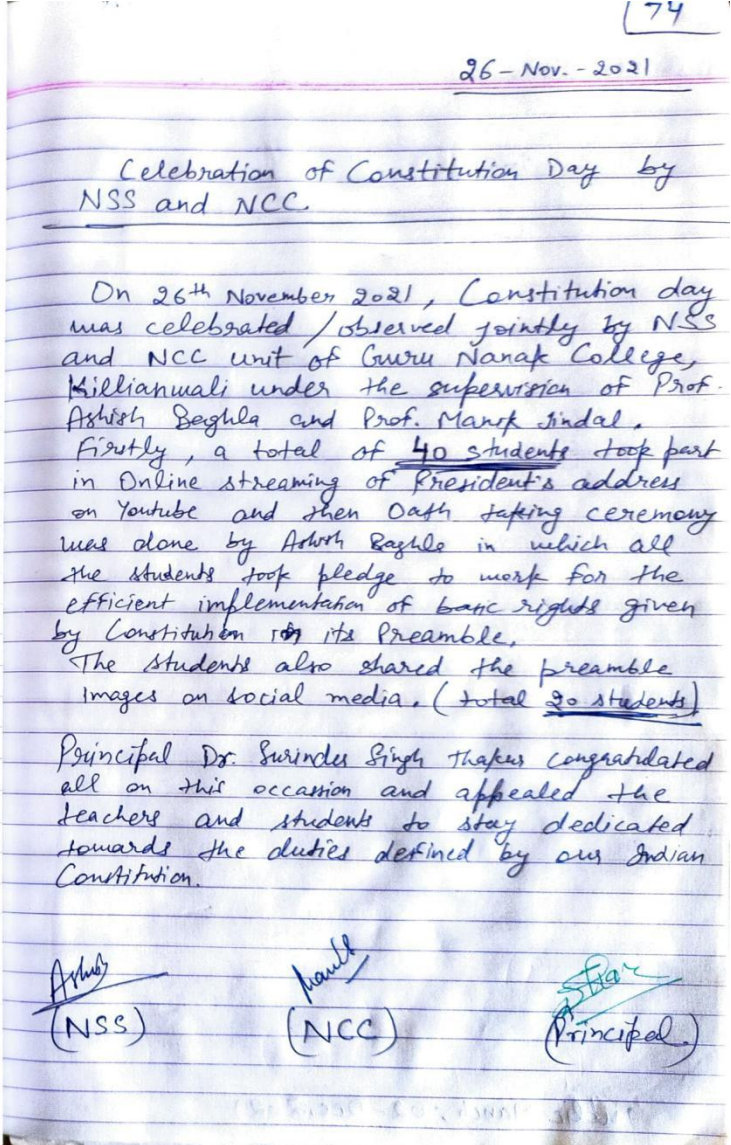 74
26-Nov.-2021
Celebration of Constitution Day by
NSS and NCC.
On 26th November 2021, Constitution day
was celebrated/observed jointly by NSS
and NCC unit of Guru Nanak College,
Killianwali under the supervision of Prof.
Ashish Baghla and Prof. Manik Jindal.
Firstly, a total of 40 students took part
in Online streaming of President's address
on Youtube and then Oath taking ceremony
was done by Ashish Baghla in which all
the students took pledge to work for the
efficient implementation of basic rights given
by Constitution in its Preamble.
The students also shared the preamble
Images on social media. (total 20 students)
Principal Dr. Surinder Singh Thakur congratulated
all on this occassion and appealed the
teachers and students to stay dedicated
towards the duties defined by our Indian
Constitution.
Ashish
(NSS) (NCC) (Principal.)